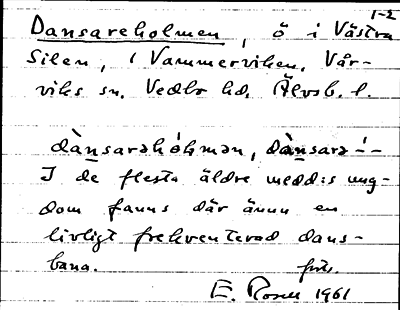 1-2
Dansareholmen, ö i Västra
Silen, i Vammerviken, Vår-
viks sn, Vedbo hd, Älvsb. l.
dànsarəhòhmən, dànsarə-'-
I de flesta äldre medd:s ung-
dom fanns där ännu en
livligt frekventerad dans-
bana.
E. Rosell 1961